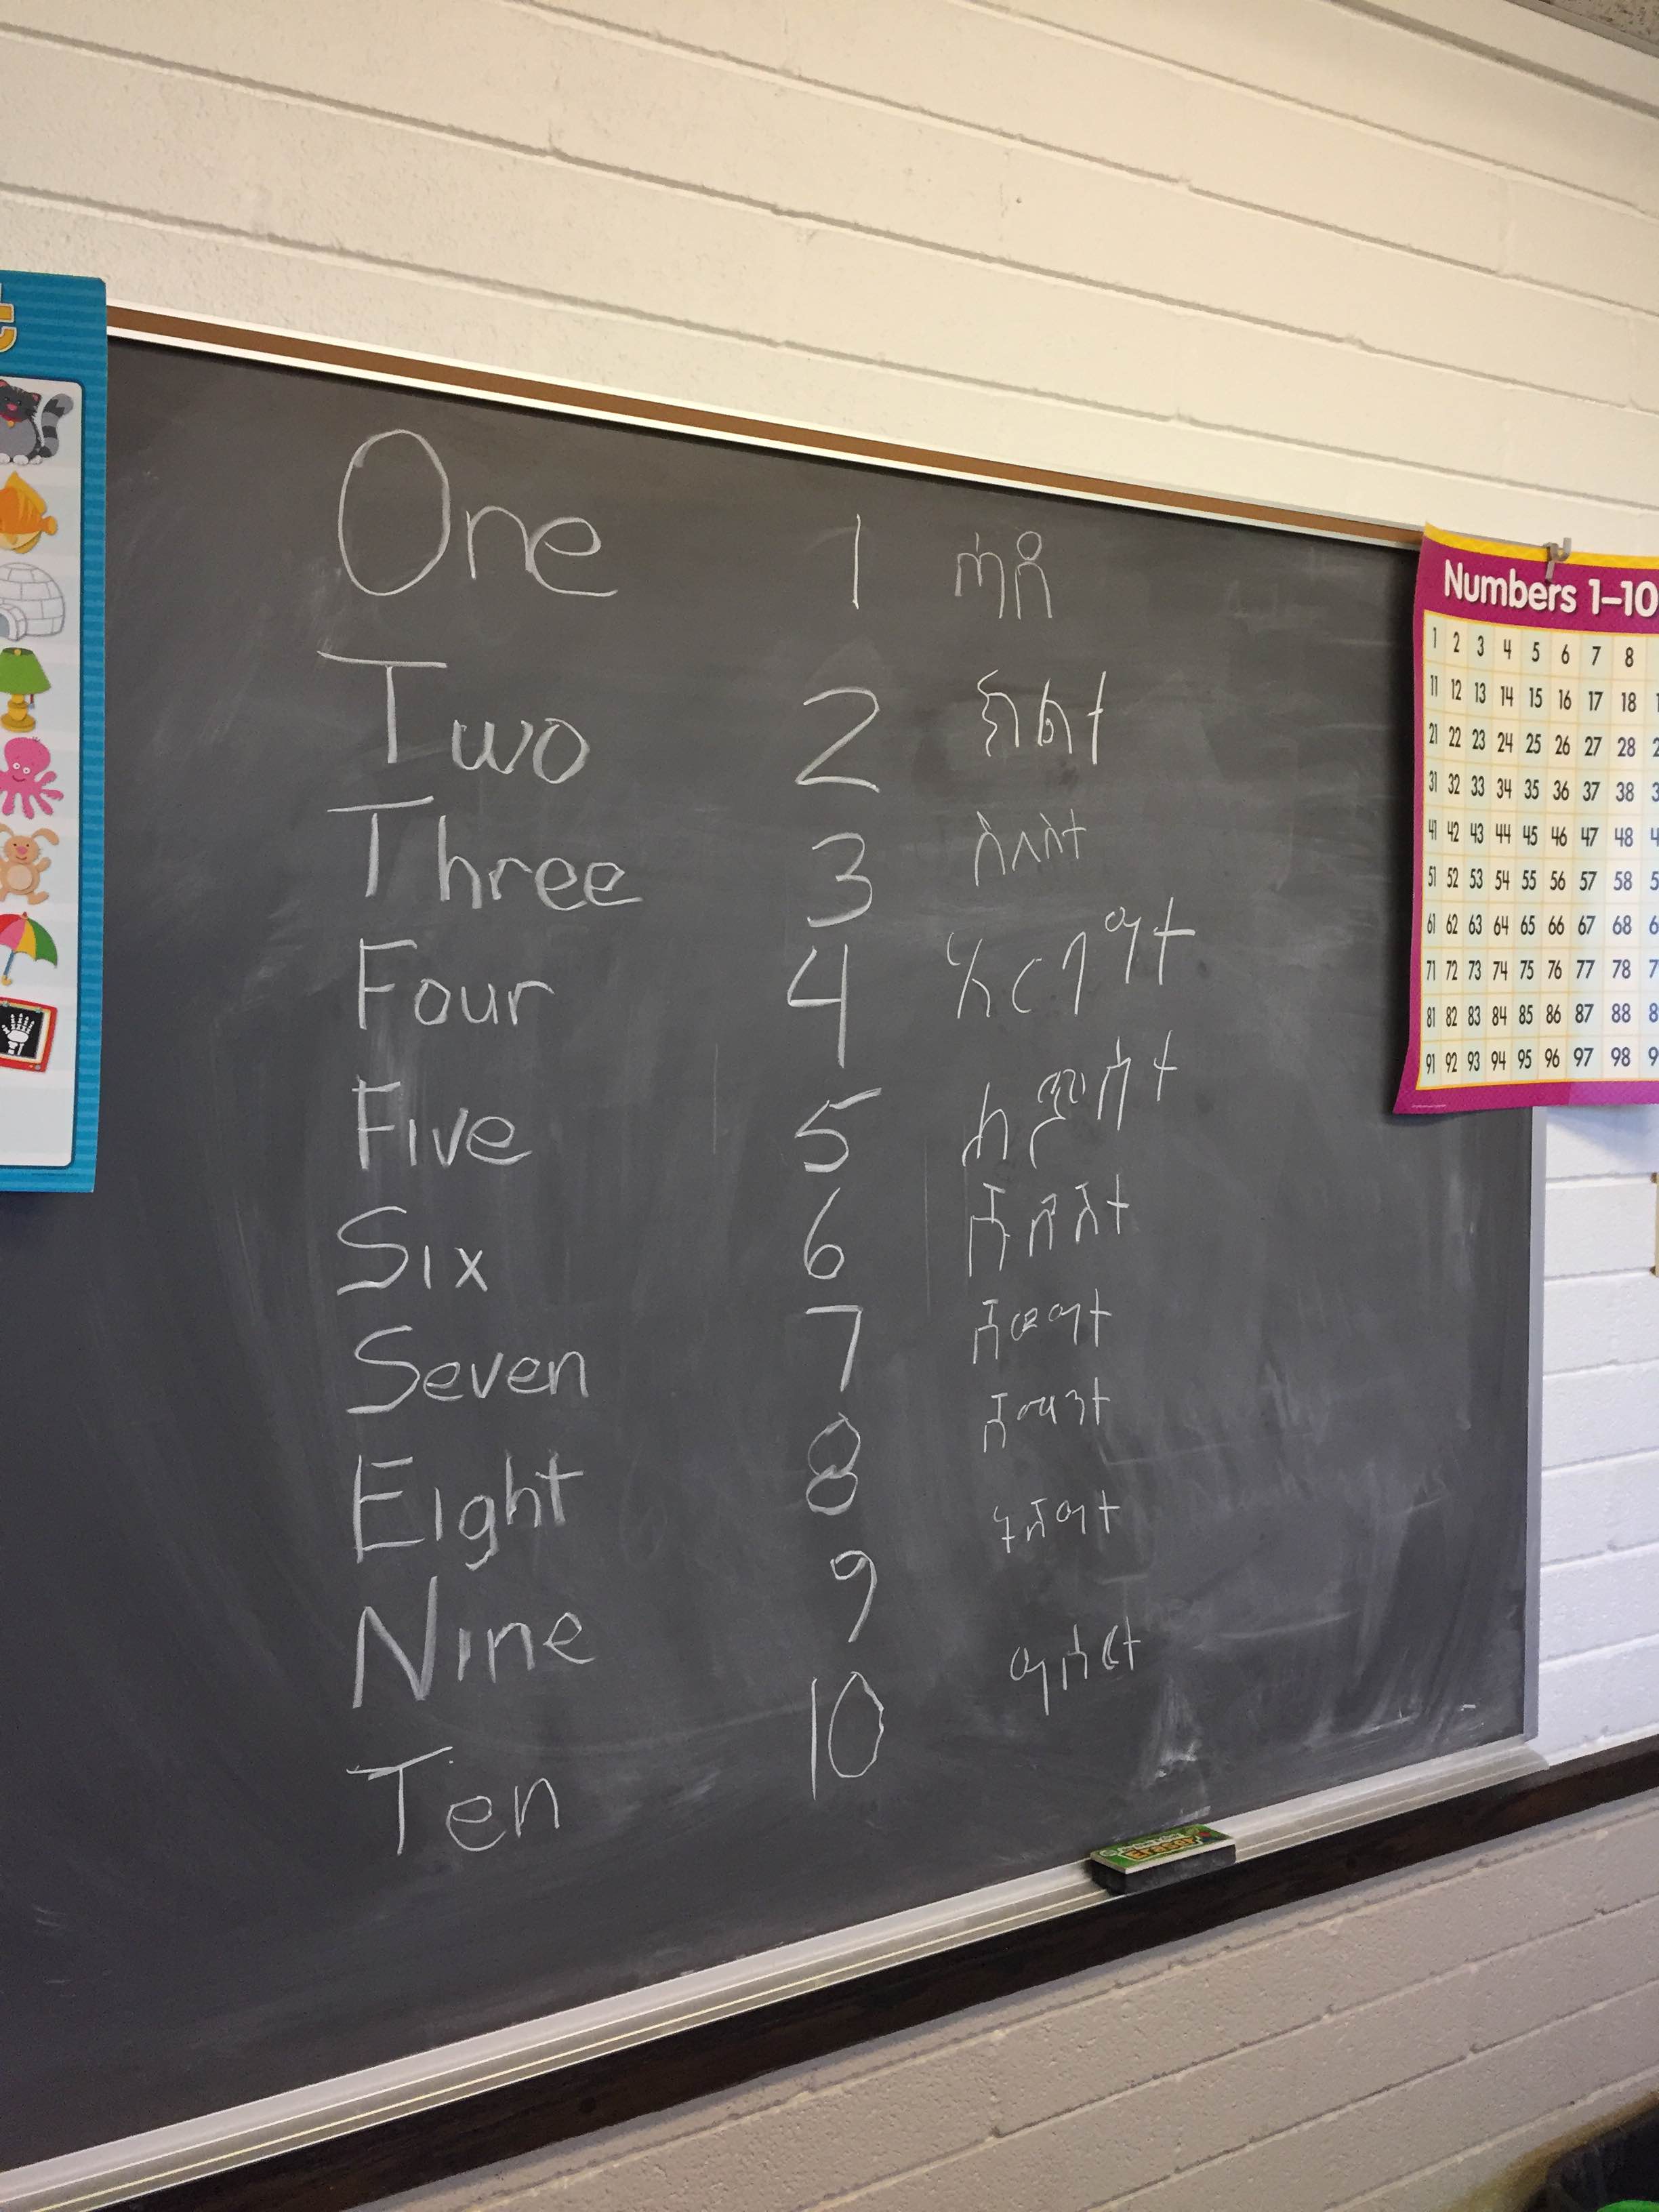 One 1 ሓደ
Two 2 ክልተ
Three 3 ሰለስተ
Four 4
Five 5
Six 6
Seven 7
Eight 8
Nine 9
Ten 10
Numbers 1–10
1 2 3 4 5 6 7 8
11 12 13 14 15 16 17 18
21 22 23 24 25 26 27 28
31 32 33 34 35 36 37 38
41 42 43 44 45 46 47 48
51 52 53 54 55 56 57 58
61 62 63 64 65 66 67 68
71 72 73 74 75 76 77 78
81 82 83 84 85 86 87 88
91 92 93 94 95 96 97 98
Eraser